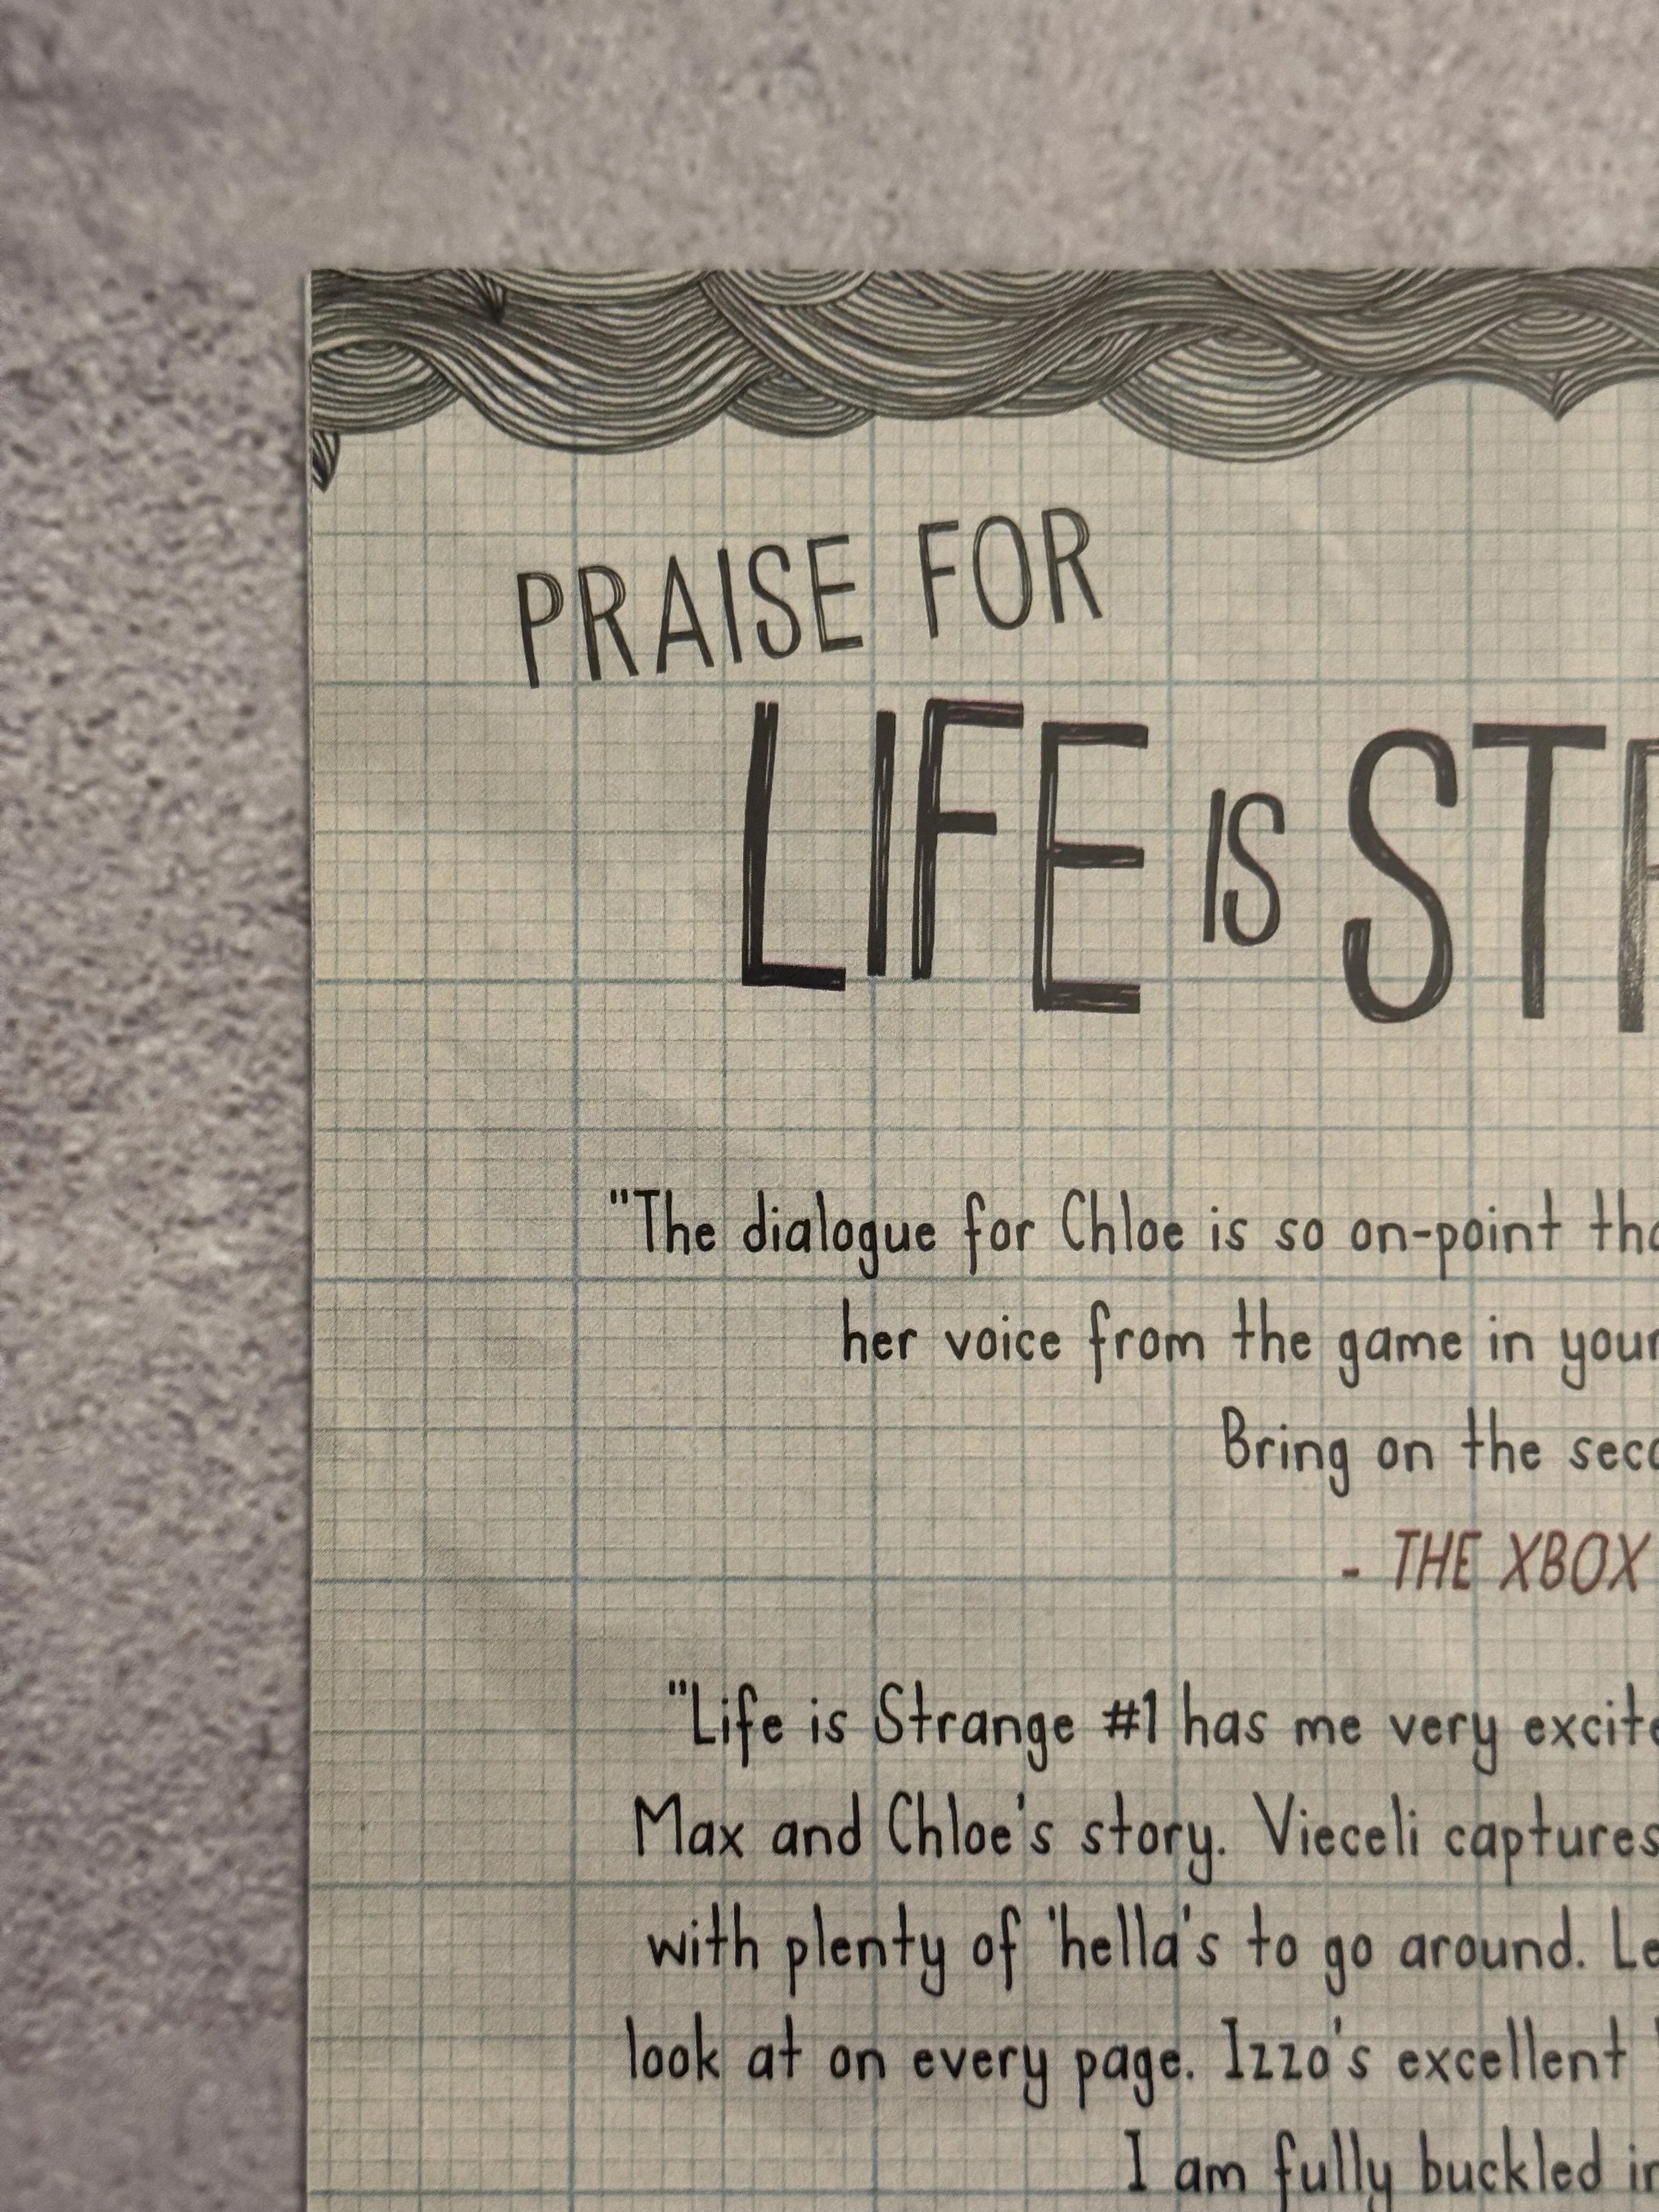 PRAISE FOR
LIFE IS
"The dialogue for Chloe is so on-point
her voice from the game in your
Bring on the
- THE XBOX
"Life is Strange #1 has me very
Max and Chloe's story. Vieceli captures
with plenty of 'hella's to go around.
look at on every page. Izzo's excellent
I am fully buckled in